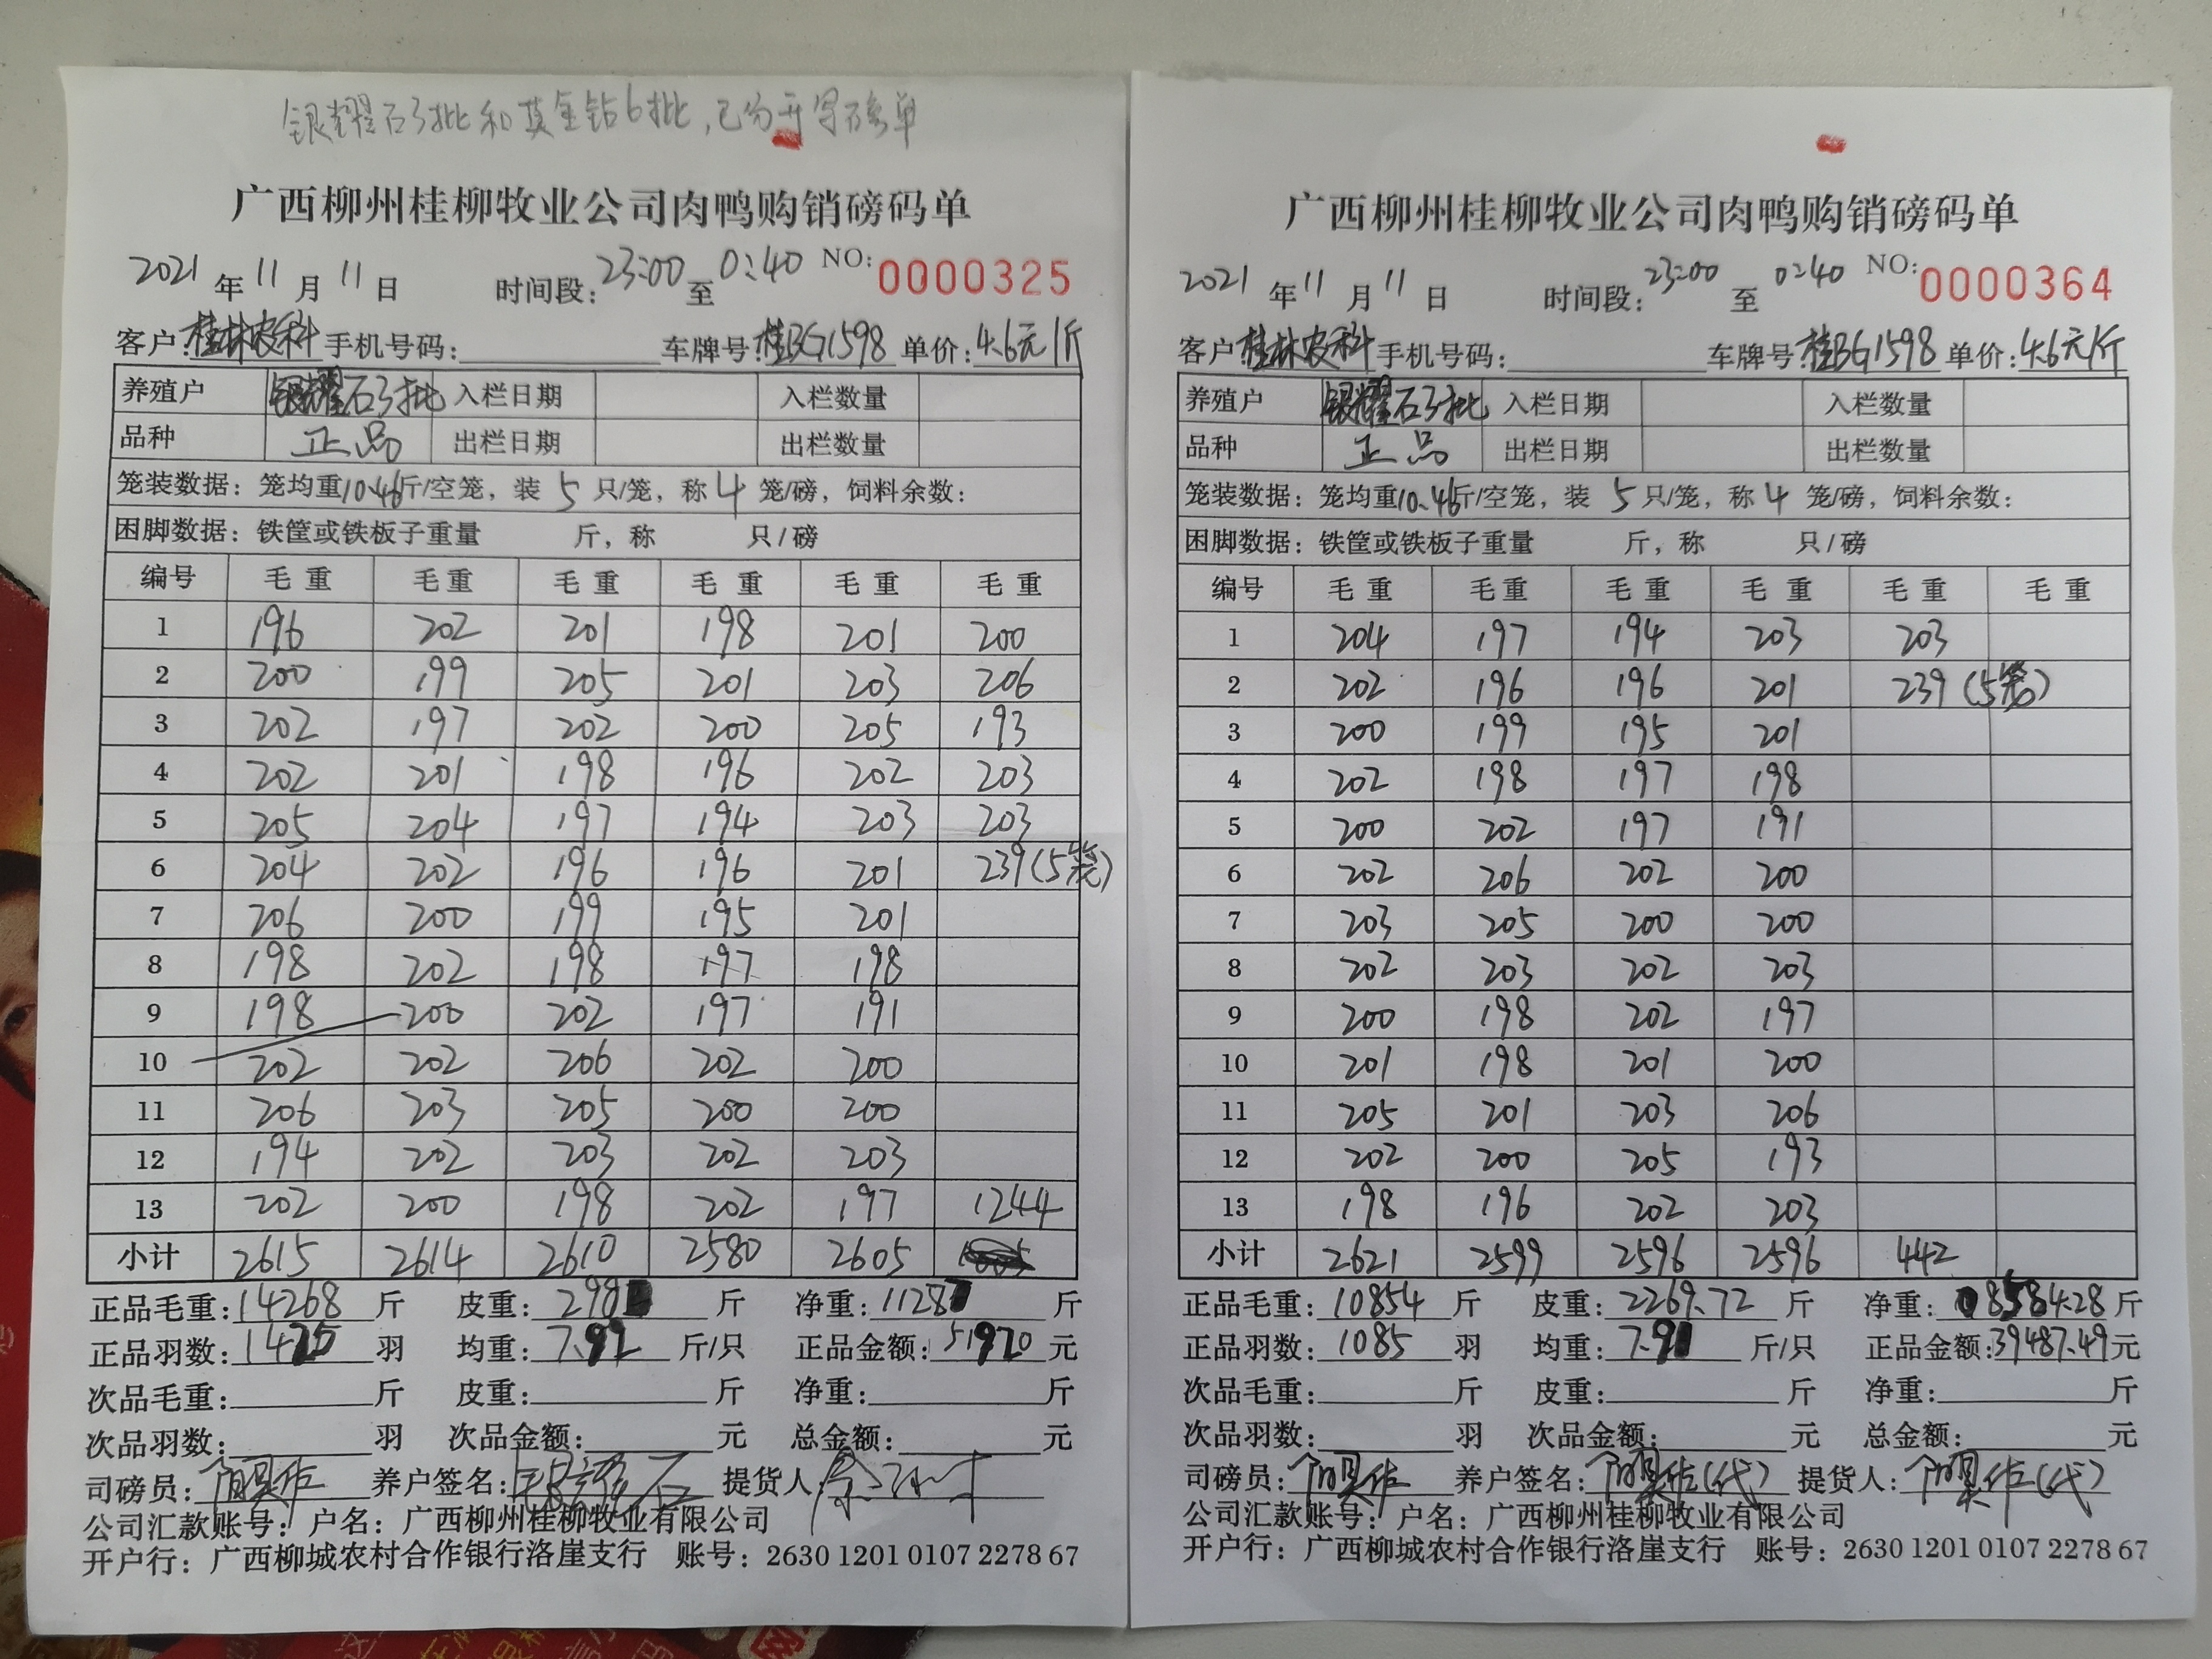 银耀石3批和莫金钻6批,已分开写磅单
广西柳州桂柳牧业公司肉鸭购销磅码单
2021年11月11日 时间段:23:00至0:40 NO:0000325
客户:桂林农科 手机号码: 车牌号:桂BG1598 单价:4.6元/斤
养殖户 银耀石3批 入栏日期 入栏数量
品种 正品 出栏日期 出栏数量
笼装数据:笼均重10.46斤/空笼,装5只/笼,称4笼/磅,饲料余数:
困脚数据:铁筐或铁板子重量 斤,称 只/磅
编号 毛重 毛重 毛重 毛重 毛重 毛重
1 196 202 201 198 201 200
2 200 199 205 201 203 206
3 202 197 202 200 205 193
4 202 201 198 196 202 203
5 205 204 197 194 203 203
6 204 202 196 196 201 239(5笼)
7 206 200 199 195 201
8 198 202 198 197 198
9 198 200 202 197 191
10 202 202 206 202 200
11 206 203 205 200 200
12 194 202 203 202 203
13 202 200 198 202 197 1244
小计 2615 2614 2610 2580 2605
正品毛重:14268斤 皮重:298 斤 净重:1128 斤
正品羽数:1425羽 均重:7.92斤/只 正品金额:51920元
次品毛重: 斤 皮重: 斤 净重: 斤
次品羽数: 羽 次品金额: 元 总金额: 元
司磅员: 养户签名:银耀石 提货人:
公司汇款账号:户名:广西柳州桂柳牧业有限公司
开户行:广西柳城农村合作银行洛崖支行 账号:2630 1201 0107 2278 67
广西柳州桂柳牧业公司肉鸭购销磅码单
2021年11月11日 时间段:23:00至0:40 NO:0000364
客户:桂林农科 手机号码: 车牌号:桂BG1598 单价:4.6元/斤
养殖户 银耀石3批 入栏日期 入栏数量
品种 正品 出栏日期 出栏数量
笼装数据:笼均重10.46斤/空笼,装5只/笼,称4笼/磅,饲料余数:
困脚数据:铁筐或铁板子重量 斤,称 只/磅
编号 毛重 毛重 毛重 毛重 毛重 毛重
1 204 197 194 203 203
2 202 196 196 201 239(5笼)
3 200 199 195 201
4 202 198 197 198
5 200 202 197 191
6 202 206 202 200
7 203 205 200 200
8 202 203 202 203
9 200 198 202 197
10 201 198 201 200
11 205 201 203 206
12 202 200 205 193
13 198 196 202 203
小计 2621 2599 2596 2596 442
正品毛重:10854斤 皮重:2269.72斤 净重:8584.28斤
正品羽数:1085羽 均重:7.91斤/只 正品金额:39487.49元
次品毛重: 斤 皮重: 斤 净重: 斤
次品羽数: 羽 次品金额: 元 总金额: 元
司磅员: 养户签名:(代) 提货人:(代)
公司汇款账号:户名:广西柳州桂柳牧业有限公司
开户行:广西柳城农村合作银行洛崖支行 账号:2630 1201 0107 2278 67